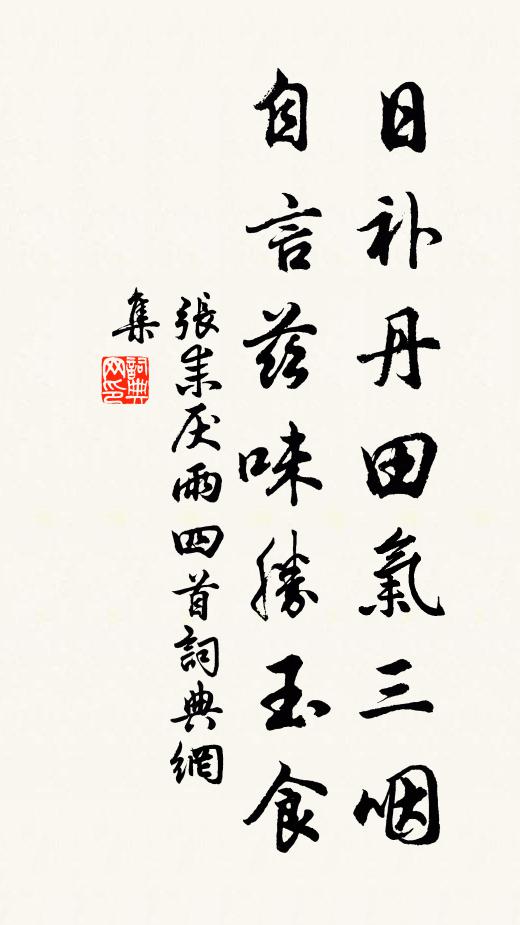 日补丹田氣三咽
自言兹味勝玉食
張耒厌雨四首詞典網
集
詞典
网印